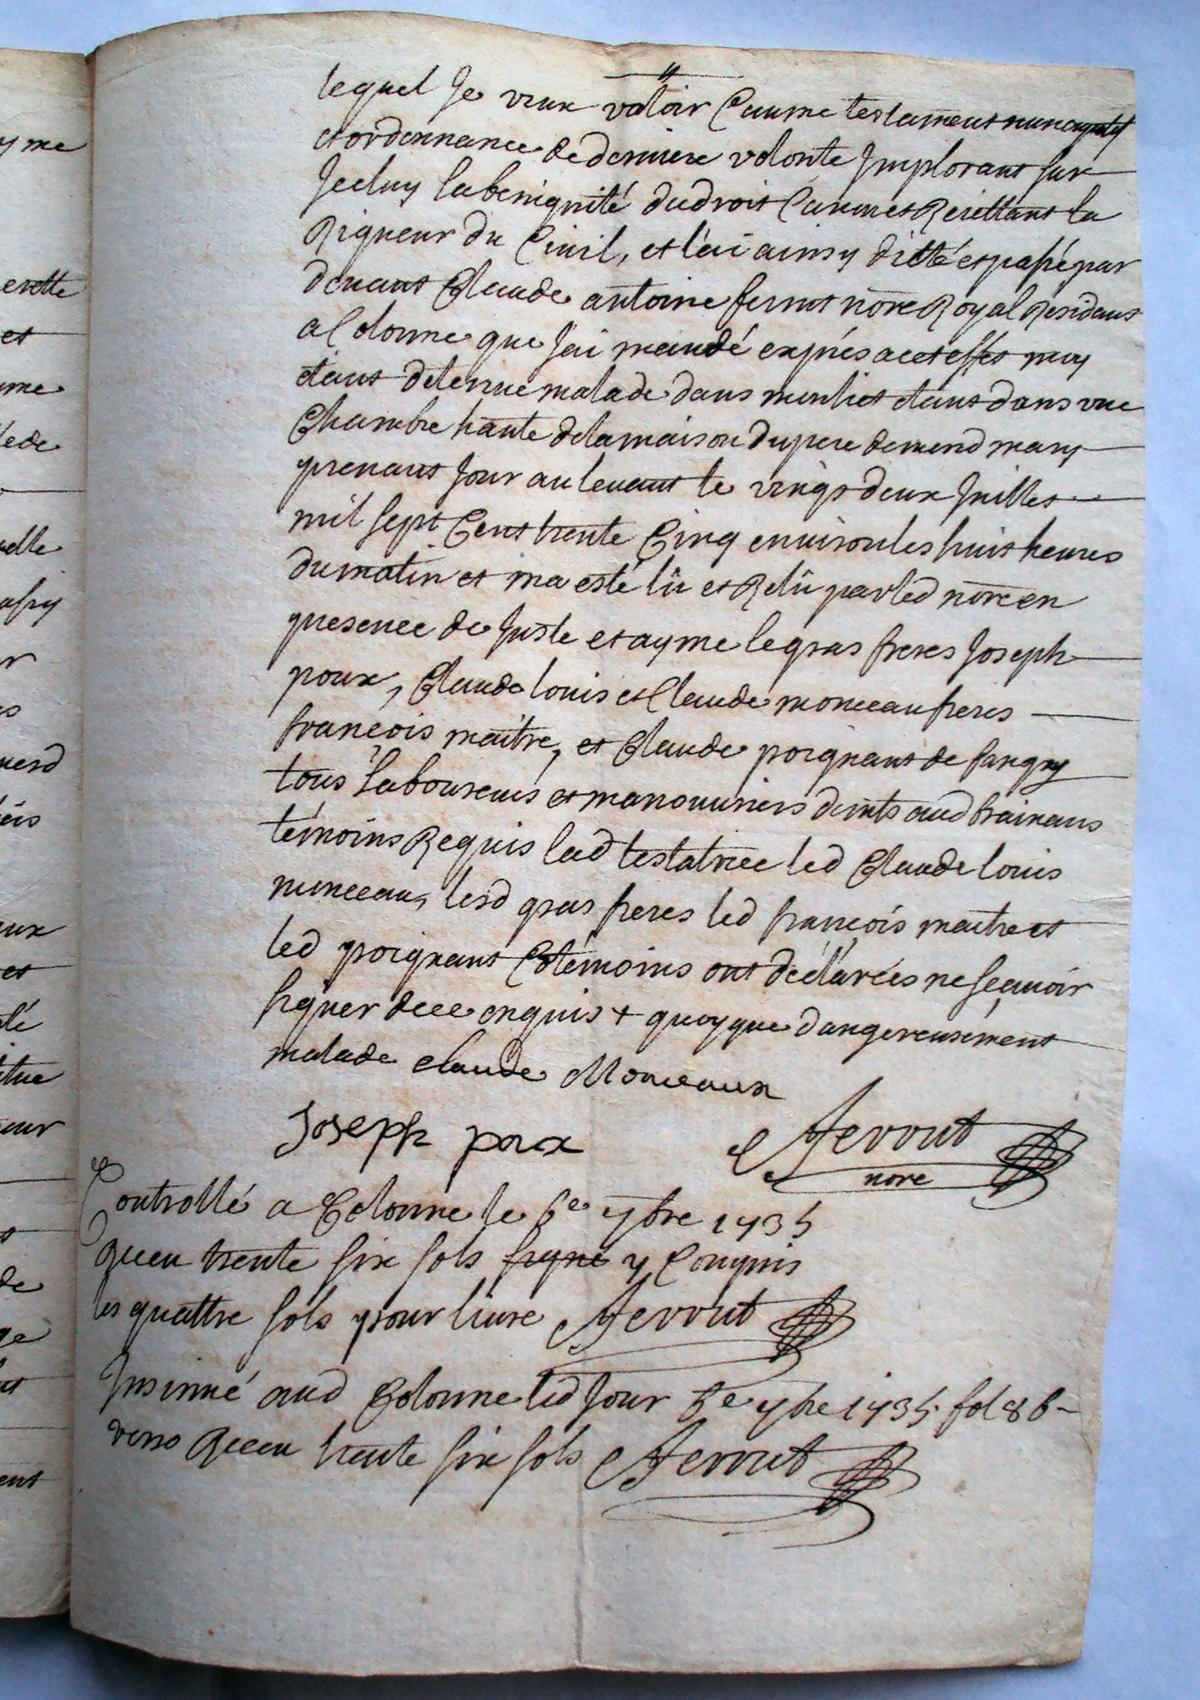 lequel Je veux valoir Comme testament nuncupatif
et ordonnance de derniere volonte Implorant sur
Jceluy la benignité du droit Canon et Rejettant la
Rigueur du Civil, et l'ai ainsy dicté et passé par
devant Claude antoine ferrout nore Royal Residant
a Colonne que J'ai mandé exprés a cet effet moy
étant detenue malade dans mon lict étant dans une
Chambre haute de la maison du pere de mond mary
prenant Jour au levant le vingt deux Juillet
mil sept Cent trente Cinq environ les huit heures
du matin et m'a esté lû et Relû par led nore en
presence de Juste et ayme legras freres Joseph
poux, Claude louis et Claude monceau freres
francois maitre, et Claude poignant de
tous laboureurs et manouvriers audt
témoins Requis lad testatrice led Claude louis
monceau, lesd gras freres led francois maitre et
led poignant témoins ont déclarées ne scavoir
signer de ce enquis + quoyque dangereusement
malade Claude Monceaux
Joseph poux
ferrout
nore
Controllé a Colonne le 6e 7bre 1735
Receu trente six sols signé y Compris
les quattre sols pour livre ferrout
Insinué aud Colonne led Jour 6e 7bre 1735 fol 86
verso Receu trente six sols ferrout
me
erette
et
me
de
elle
r
aux
et
lé
itue
eur
de
ge
ent